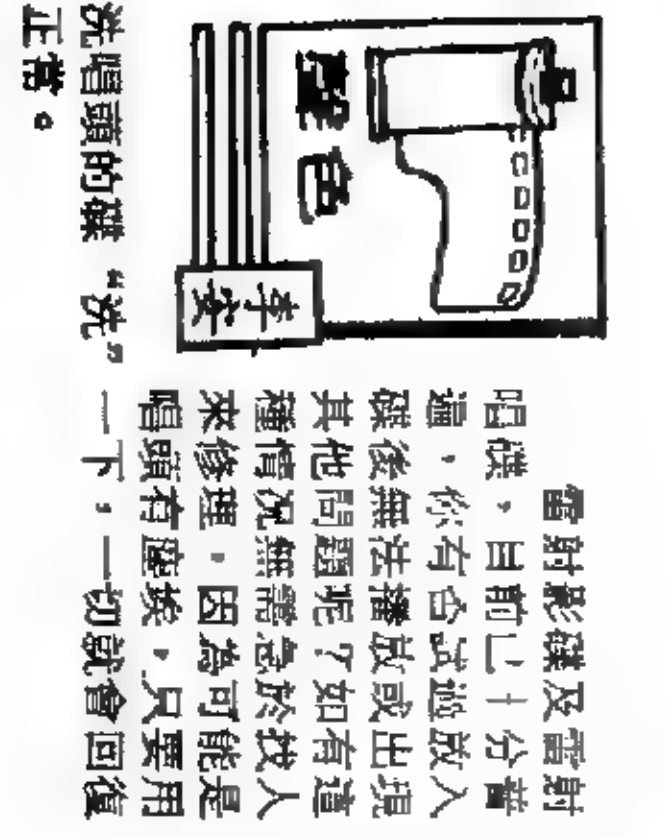 聲色
雷射影碟及雷射
唱碟，目前已十分普
遍，你有否試過放入
碟後無法播放或出現
其他問題呢？如有這
種情況無需急於找人
來修理，因為可能是
唱頭有塵埃，只要用
洗唱頭的碟“洗”一下，一切就會回復
正常。